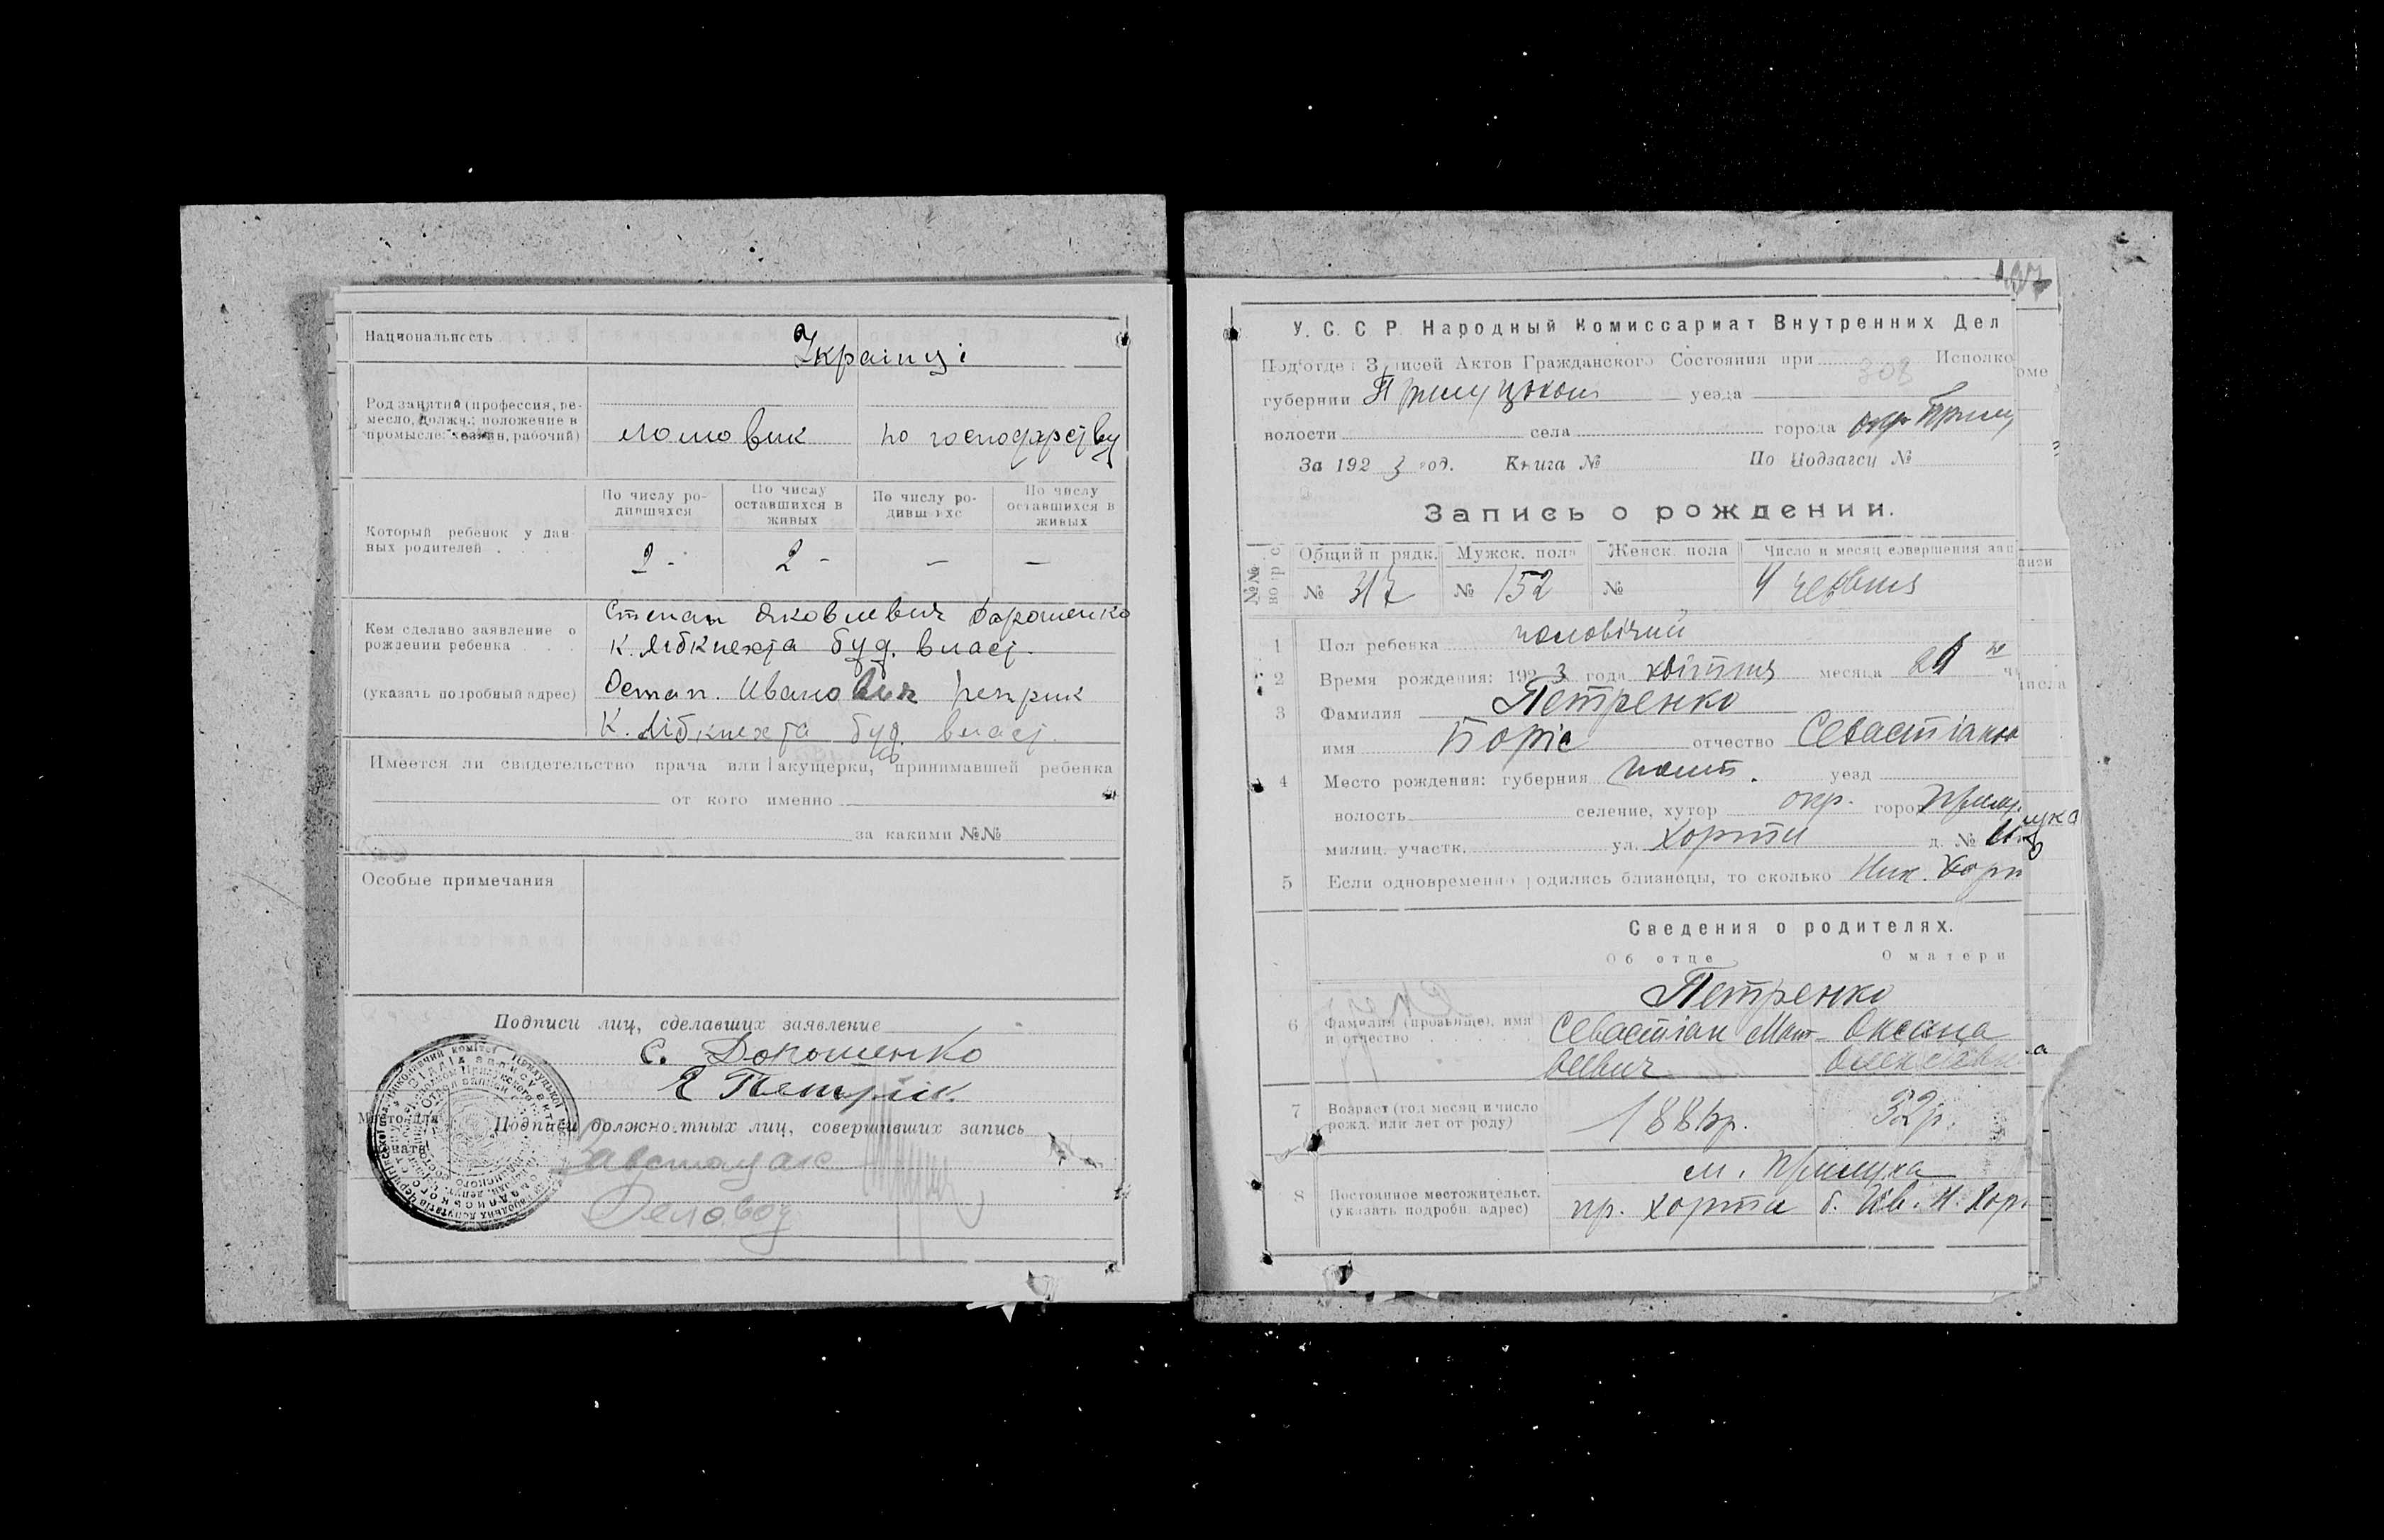 Национальность
Українці
Род занятий (профессия, ре-
месло, должн.: положение в
промысле: хозяин, рабочий)
ломовик по господарству
Который ребенок у дан-
ных родителей . . .
По числу ро-
дившихся
По числу
оставшихся в
живых
По числу ро-
дившихс
По числу
оставшихся в
живых
2 - 2 - — —
Кем сделано заявление о
рождении ребенка . . .
(указать подробный адрес)
Степан Яковлевич Дорошенко
К. Лібкнехта буд. власт.
Остап Иванович
К. Лібкнехта буд. власт.
Имеется ли свидетельство врача или акушерки, принимавшей ребенка
от кого именно
за какими №№
Особые примечания
Подписи лиц, сделавших заявление
С. Дорошенко
Подписи должностных лиц, совершивших запись
Завстолом
Деловод
Место для
печати
У. С. С. Р. Народный Комиссариат Внутренних Дел
Подотдел Записей Актов Гражданского Состояния при Исполко
308
губернии Прилуцькой уезда
волости села города окр. Прилу
За 1923 год. Книга № По Подзагсу №
Запись о рождении.
№№ Общий п рядк. Мужск. пола Женск. пола Число и месяц совершения зап
№ 317 № 152 № 4 червня
1 Пол ребенка чоловічий
2 Время рождения: 1923 года квітня месяца
3 Фамилия Петренко
имя Боріс отчество Севастіянов
4 Место рождения: губерния Полт. уезд
волость селение, хутор окр. город Прилука
милиц. участк. ул. Хорти д. №
5 Если одновременно родились близнецы, то сколько
Сведения о родителях.
Об отце О матери
Петренко
6 Фамилия (прозвище), имя
и отчество . . . .
Севастіян Мат
веевич
Оксана
7 Возраст (год месяц и число
рожд. или лет от роду)
32р.
м. Прилука
8 Постоянное местожительст.
(указать подробн. адрес)
пр. Хорта